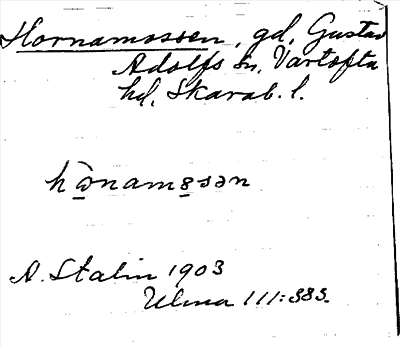 Hornamossen, gd, Gustav
Adolfs sn, Vartofta
hd, Skarab. l.
hɷ̀namɞsən
A. Stalin 1903
Ulma 111:383.